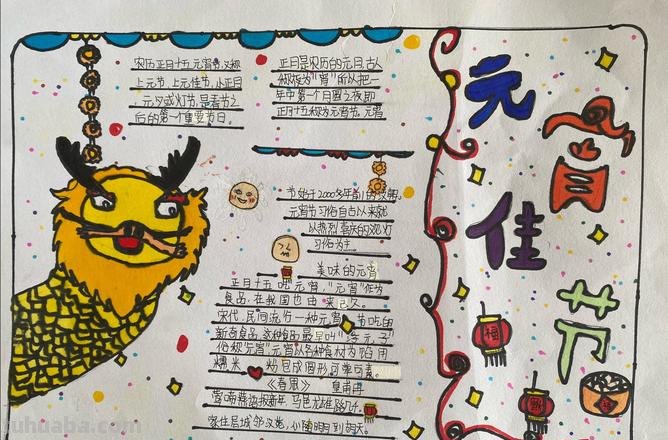 元宵佳节
农历正月十五元宵节,又称
上元节,上元佳节,小正月
元夕或灯节,是春节之
后的第一个重要节日。
正月是农历的元月,古人
称夜为"宵"所以把一
年中第一个月圆之夜即
正月十五称为元宵节。元宵
节始于2000多年前的汉朝,
元宵节习俗自古以来就
以热烈喜庆的观灯
习俗为主
美味的元宵
正月十五吃元宵,"元宵"作为
食品,在我国也由来已久。
宋代,民间流行一种元宵节吃的
新奇食品,这种食品最早叫"浮元子"
俗称"元宵"元宵以各种食材为馅用
糯米粉包成圆形可荤可素。
《春思》 皇甫冉
莺啼燕语报新年 马邑龙堆路几千
家住层城邻汉苑,心随明月到胡天。
福
yuhuaba.com